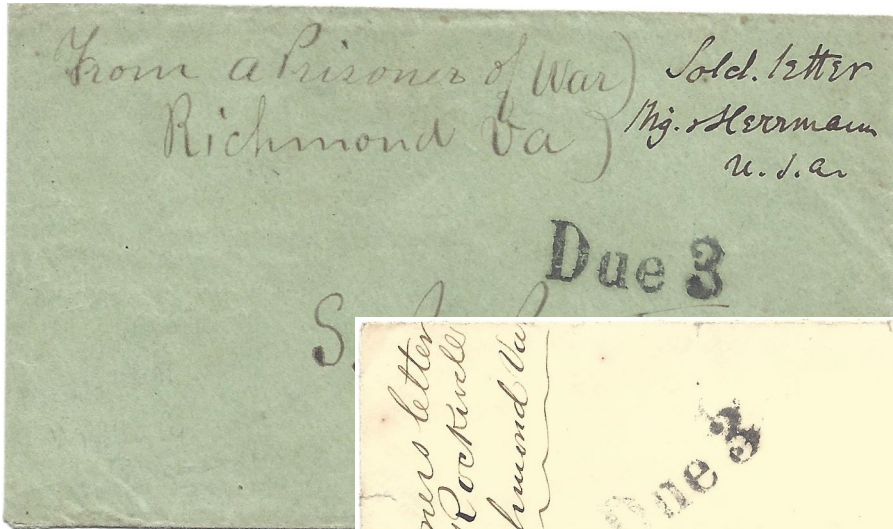 From a Prisoner of War)
Richmond Va )
Sold. letter
Mg. Herrmann
U.S.A.
Due 3
S.
ners letter
Rockville
hmond Va
Due 3